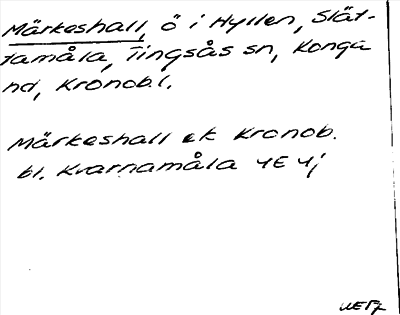 Märkeshall, ö i Hyllen, Slät-
tamåla, Tingsås sn, Konga
hd, Kronob.l.
Märkeshall ek Kronob.
bl. Kvarnamåla 4E 4j